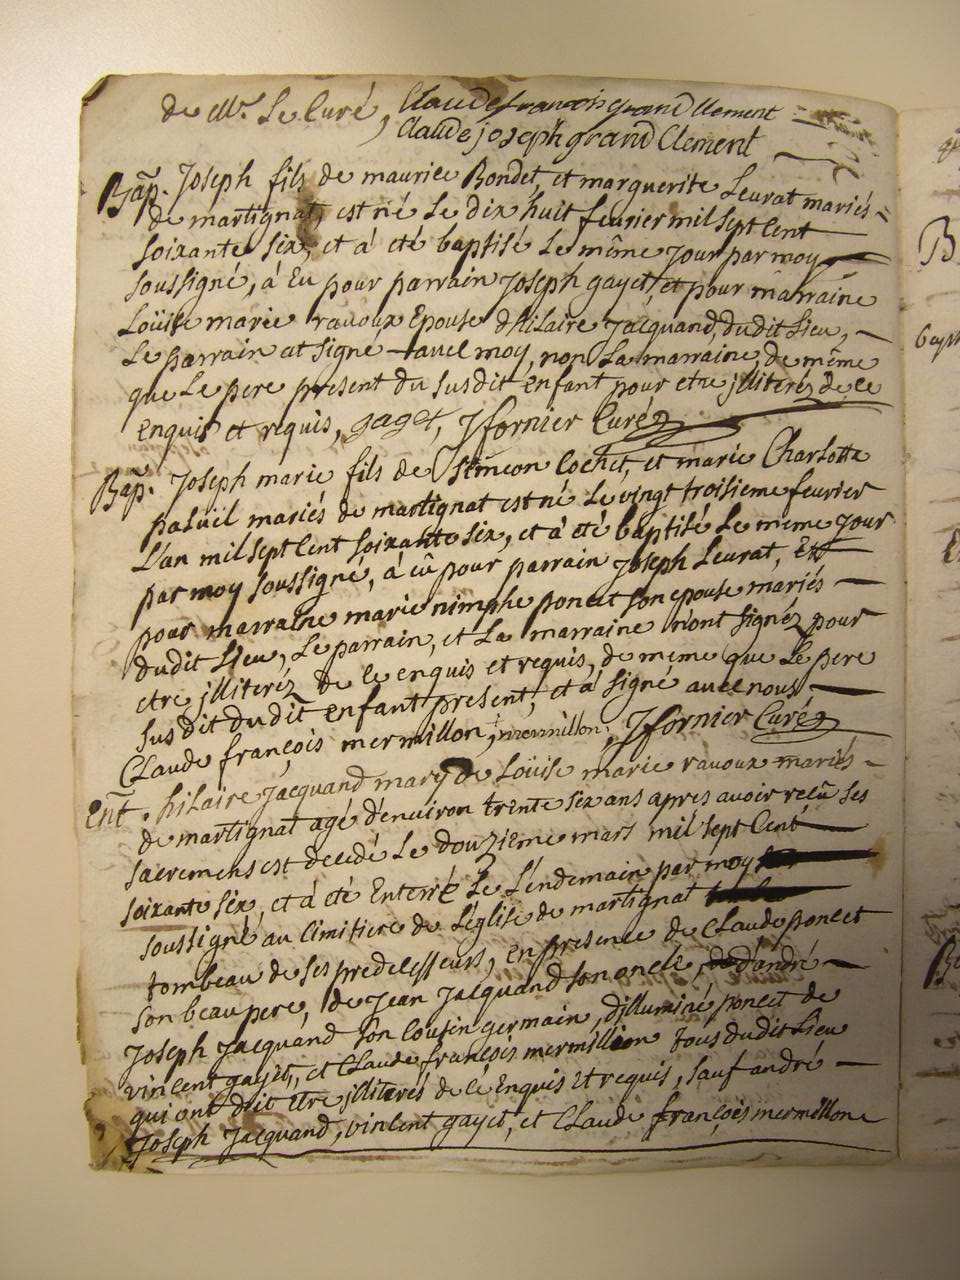 de Mr. Le Curé, Claude françois grand Clement
Claude joseph grand Clement
Bap. Joseph fils de maurice Bondet, et marguerite Leurat mariés
de martignat, est né Le dix huit fevrier mil sept Cent
soixante six, et á eté baptisé Le même Jour par moy
soussigné, á Eu pour parrain Joseph gayet, et pour marraine
Loüise marie ravoux Epouse d'hilaire Jacquand, dudit Lieu,
Le parrain at signé avec moy, non La marraine, de même
que Le pere present du susdit enfant pour etre jlliterez de ce
enquis et requis, gaget, Jfornier Curé
Bap. Joseph marie fils de Simeon Cochet, et marie Charlotte
paluil mariés de martignat est né Le vingt troisieme fevrier
L'an mil sept Cent soixante six, et á eté baptisé Le meme Jour
par moy soussigné, á eû pour parrain Joseph Leurat, Et
pour marraine marie nimphe poncet son epouse mariés
dudit Lieu, Le parrain, et La marraine n'ont signéz pour
etre jlliteréz de Ce enquis et requis, de meme que Le pere
susdit dudit enfant present, et á signé avec nous
Claude françois mermillon, mermillon, Jfornier Curé
Ent. hilaire Jacquand mary de Loüise marie ravoux mariés
de martignat agé d'environ trente six ans apres avoir reçû ses
sacremens est decedé Le douzieme mars mil sept Cent
soixante six, et á eté Enterré Le Lendemain par moy
soussigné au Cimitiere de L'église de martignat
tombeau de ses predecesseurs, en presence de Claude poncet
son beau pere, de Jean Jacquand son oncle, d'andré
Joseph Jacquand son Cousin germain, d'jlluminé poncet de
vincent gayet, et Claude françois mermillon tous dudit Lieu
qui ont dit etre jlliterés de Ce Enquis Et requis, sauf andré
Joseph Jacquand, vincent gayet, et Claude françois mermillon